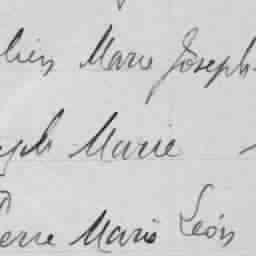 lien Marie Joseph
seph Marie
Pierre Marie Léon